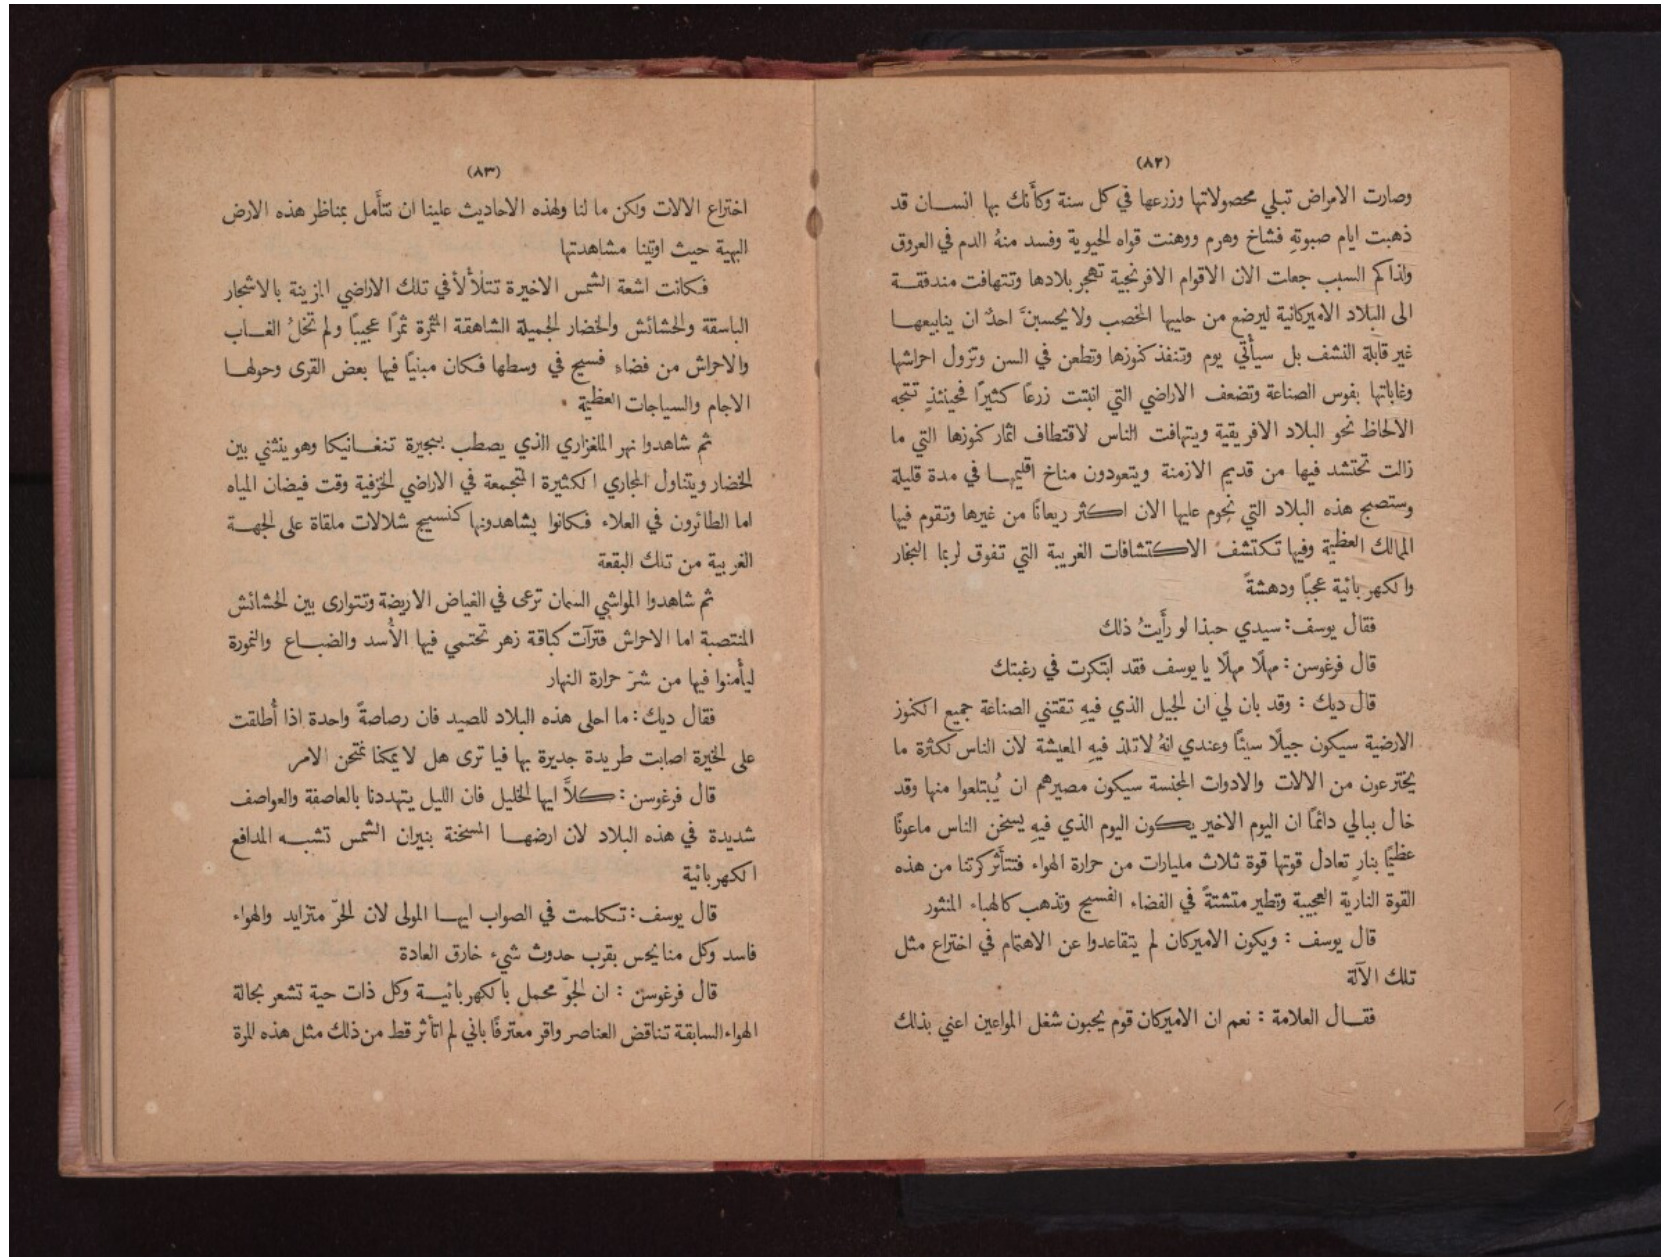 (٨٢)
وصارت الامراض تبلي محصولاتها وزرعها في كل سنة وكأنك بها انسان قد
ذهبت ايام صبوتهِ فشاخ وهرم ووهنت قواه الحيوية وفسد منهُ الدم في العروق
ولذاكم السبب جعلت الان الاقوام الافرنجية تهجر بلادها وتتهافت مندفقة
الى البلاد الاميركانية ليرضع من حليبها المخصب ولا يحسبنَّ احدٌ ان ينابيعها
غير قابلة النشف بل سيأتي يوم وتنفذ كنوزها وتطعن في السن وتزول احراشها
وغاباتها بفوس الصناعة وتضعف الاراضي التي انبتت زرعًا كثيرًا فحينئذٍ تتجه
الالحاظ نحو البلاد الافريقية ويتهافت الناس لاقتطاف اثمار كنوزها التي ما
زالت تحتشد فيها من قديم الازمنة ويتعودون مناخ اقليمها في مدة قليلة
وستصبح هذه البلاد التي نحوم عليها الان اكثر ريعانًا من غيرها وتقوم فيها
الممالك العظيمة وفيها تكتشف الاكتشافات الغريبة التي تفوق لربما البخار
والكهربائية عجبًا ودهشةً
فقال يوسف : سيدي حبذا لو رأَيتُ ذلك
قال فرغوسن : مهلًا مهلًا يا يوسف فقد ابتكرت في رغبتك
قال ديك : وقد بان لي ان الجيل الذي فيهِ تقتني الصناعة جميع الكنوز
الارضية سيكون جيلًا سيئًا وعندي انهُ لا تلذ فيهِ المعيشة لان الناس لكثرة ما
يخترعون من الالات والادوات المجنسة سيكون مصيرهم ان يُبتلعوا منها وقد
خال ببالي دائمًا ان اليوم الاخير يكون اليوم الذي فيهِ يسخن الناس ماعونًا
عظيمًا بنارٍ تعادل قوتها قوة ثلاث مليارات من حرارة الهواء فتتأثر كرتنا من هذه
القوة النارية العجيبة وتطير متشتةً في الفضاء الفسيح وتذهب كالهباء المنثور
قال يوسف : ويكون الاميركان لم يتقاعدوا عن الاهتمام في اختراع مثل
تلك الآلة
فقال العلامة : نعم ان الاميركان قوم يحبون شغل المواعين اعني بذلك
(٨٣)
اختراع الالات ولكن ما لنا ولهذه الاحاديث علينا ان نتأمل بمناظر هذه الارض
البهية حيث اوتينا مشاهدتها
فكانت اشعة الشمس الاخيرة تتلألأ في تلك الاراضي المزينة بالاشجار
الباسقة والحشائش والخضار الجميلة الشاهقة المثمرة ثمرًا عجيبًا ولم تخلُ الغاب
والاحراش من فضاءٍ فسيح في وسطها فكان مبنيًا فيها بعض القرى وحولها
الاجام والسياجات العظيمة .
ثم شاهدوا نهر الملغزاري الذي يصطب ببحيرة تنغانيكا وهو ينثني بين
الخضار ويتناول المجاري الكثيرة المتجمعة في الاراضي الخزفية وقت فيضان المياه
اما الطائرون في العلاء فكانوا يشاهدونها كنسيج شلالات ملقاة على الجهة
الغربية من تلك البقعة
ثم شاهدوا المواشي السمان ترعى في الغياض الاريضة وتتوارى بين الحشائش
المنتصبة اما الاحراش فترآت كباقة زهر تحتمي فيها الأُسد والضباع والنمورة
ليأمنوا فيها من شرّ حرارة النهار
فقال ديك : ما احلى هذه البلاد للصيد فان رصاصةً واحدة اذا أُطلقت
على الخيرة اصابت طريدة جديرة بها فيا ترى هل لا يمكنا نمتحن الامر
قال فرغوسن : كلاَّ ايها الخليل فان الليل يتهددنا بالعاصفة والعواصف
شديدة في هذه البلاد لان ارضها المسخنة بنيران الشمس تشبه المدافع
الكهربائية
قال يوسف : تكلمت في الصواب ايها المولى لان الحرّ متزايد والهواء
فاسد وكل منا يحس بقرب حدوث شيء خارق العادة
قال فرغوسن : ان الجوّ محمل بالكهربائية وكل ذات حية تشعر بحالة
الهواء السابقة تناقض العناصر واقر معترفًا باني لم اتأثر قط من ذلك مثل هذه المرة